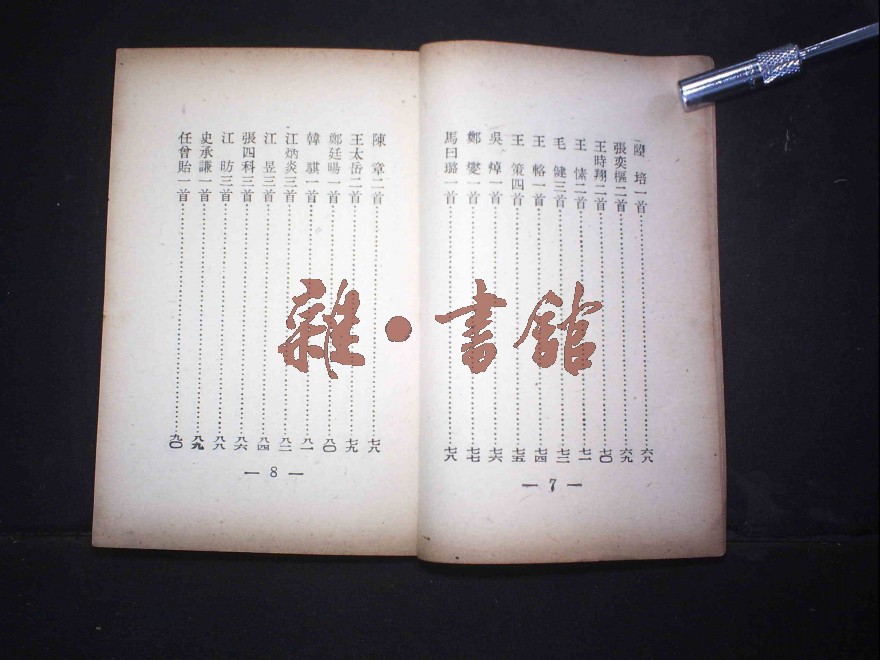 陸培一首……六八
張奕樞二首……六九
王時翔二首……七〇
王愫二首……七一
毛健三首……七二
王輅一首……七四
王策四首……七五
吳焯一首……七六
鄭燮一首……七七
馬曰璐一首……七八
— 7 —
陳章二首……七八
王太岳二首……七九
鄭廷暘一首……八〇
韓騏一首……八一
江炳炎三首……八二
江昱三首……八四
張四科三首……八六
江昉三首……八八
史承謙一首……八九
任曾貽一首……九〇
— 8 —
雜·書館